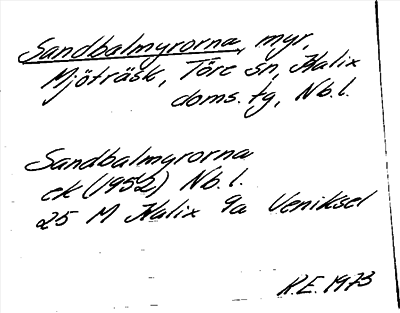 Sandbalmyrorna, myr,
Mjöträsk, Töre sn, Kalix
doms. tg, Nb.l.
Sandbalmyrorna
ek (1952) Nb.l.
25 M Kalix 9a Veniksel
R.E. 1973